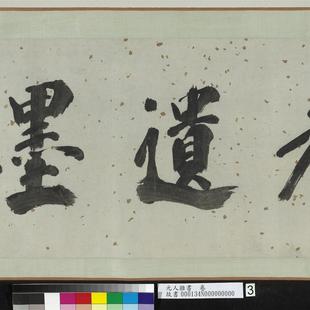 遺墨
元人雜書 卷
故書 000134N000000000
3